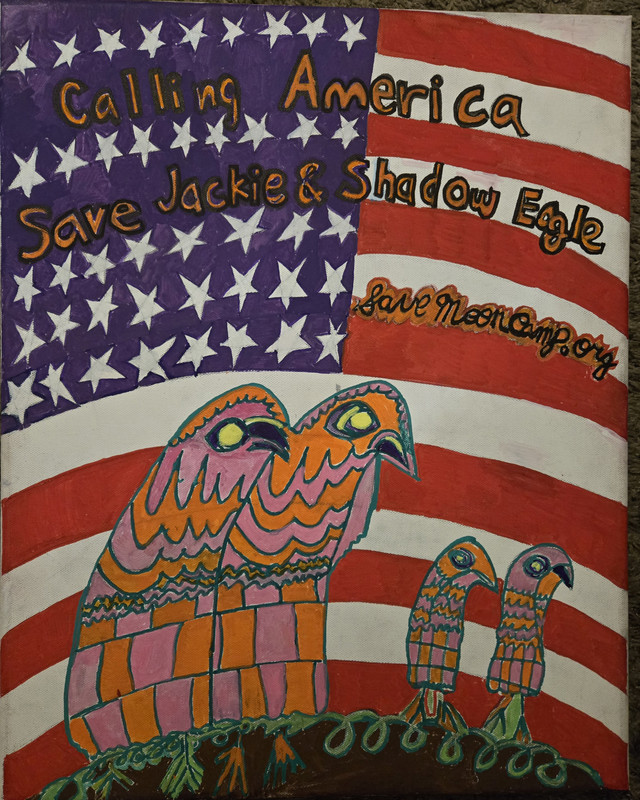 Calling America
Save Jackie & Shadow Eagle
SaveMoonCamp.org